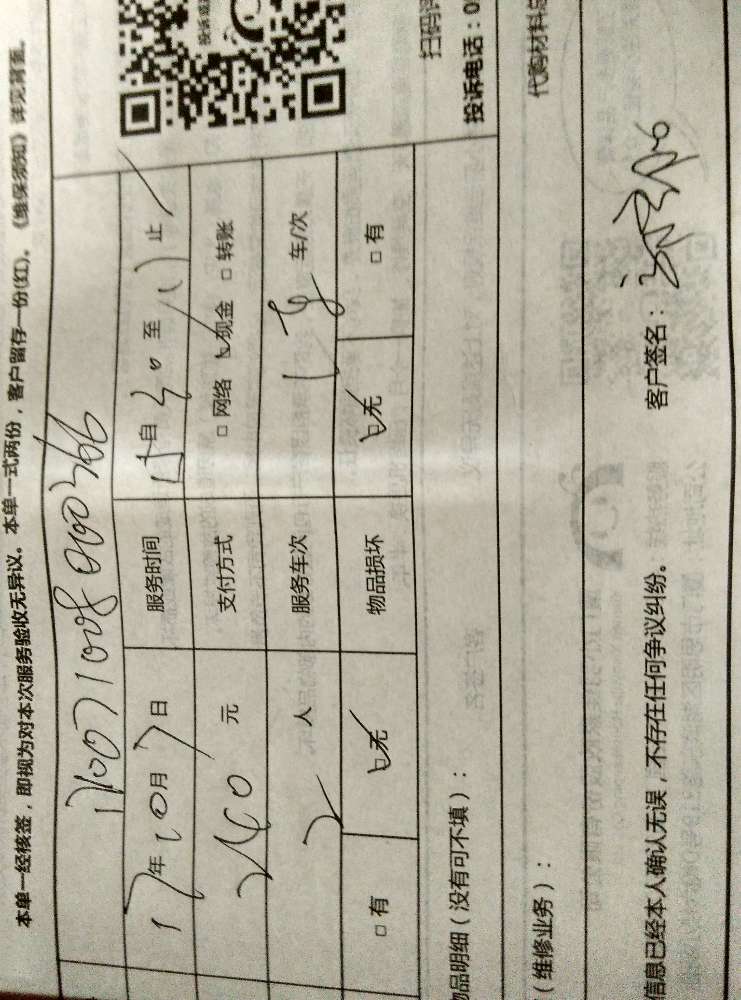 本单一经核签，即视为对本次服务验收无异议。本单一式两份，客户留存一份(红)。《维保须知》详见背面。
17年10月7日 服务时间 自 30 至 止
240元 支付方式 □网络 ☑现金 □转账
2人 服务车次 1 车/次
□有 ☑无 物品损坏 ☑无 □有
扫码
投诉电话：0
品明细（没有可不填）：
（维修业务）： 代购材料
信息已经本人确认无误，不存在任何争议纠纷。 客户签名：